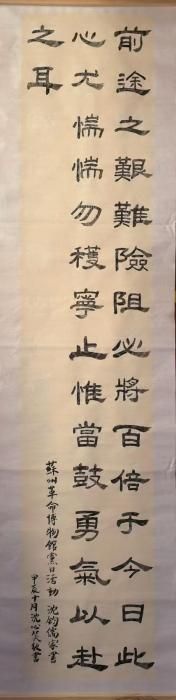 前途之艱難險阻必將百倍于今日此
心尤惴惴勿穫寧止惟當鼓勇氣以赴
之耳
蘇州革命博物館黨日活動 沈鈞儒家書
甲辰十月沈心笑敬書